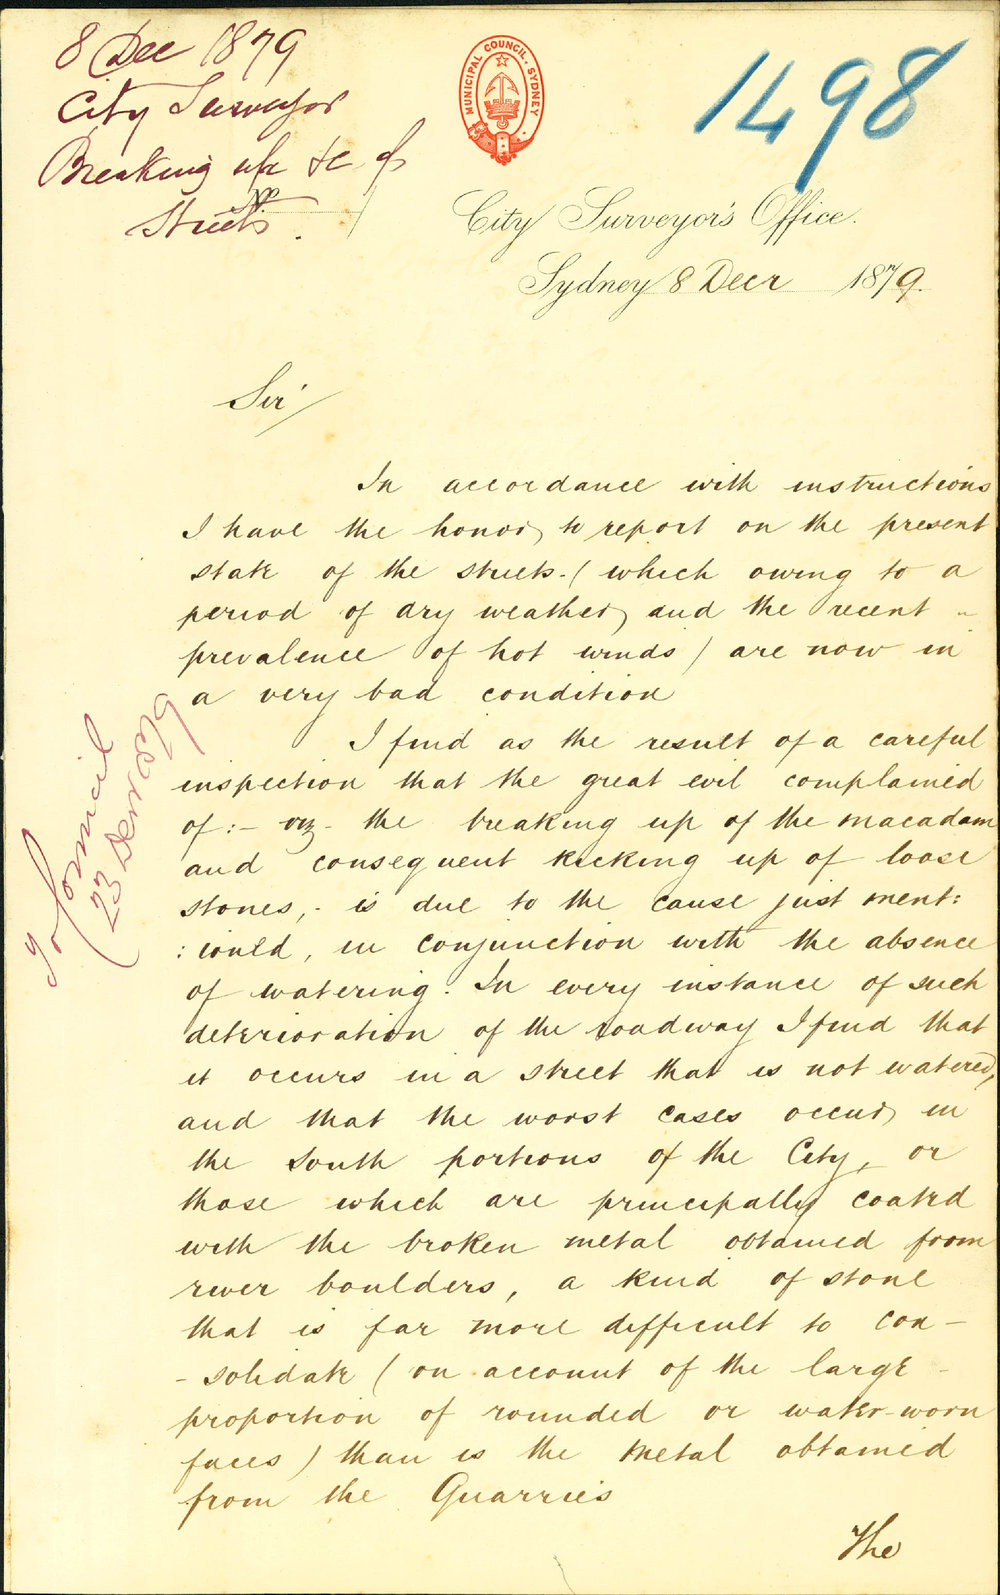 8 Dec 1879
City Surveyor
Breaking up &c of
Streets.
MUNICIPAL COUNCIL. SYDNEY
1498
City Surveyor's Office.
Sydney 8 Decr 1879.
Sir
In accordance with instructions
I have the honor to report on the present
state of the streets. (which owing to a
period of dry weather and the recent
prevalence of hot winds) are now in
a very bad condition
I find as the result of a careful
inspection that the great evil complained
of:- viz- the breaking up of the macadam
and consequent kicking up of loose
stones,- is due to the cause just ment:
:ioned, in conjunction with the absence
of watering. In every instance of such
deterioration of the roadway I find that
it occurs in a street that is not watered,
and that the worst cases occur in
the South portions of the City, or
those which are principally coated
with the broken metal obtained from
river boulders, a kind of stone
that is far more difficult to con-
-solidate (on account of the large
proportion of rounded or water-worn
faces) than is the metal obtained
from the Quarries
The
To Council
23 Decr 1879